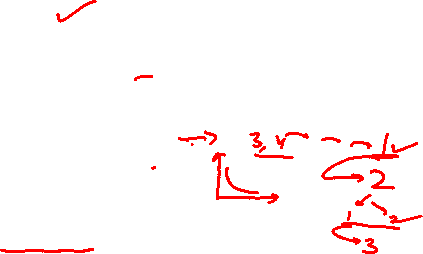 3, 4
1
2
1 2
3